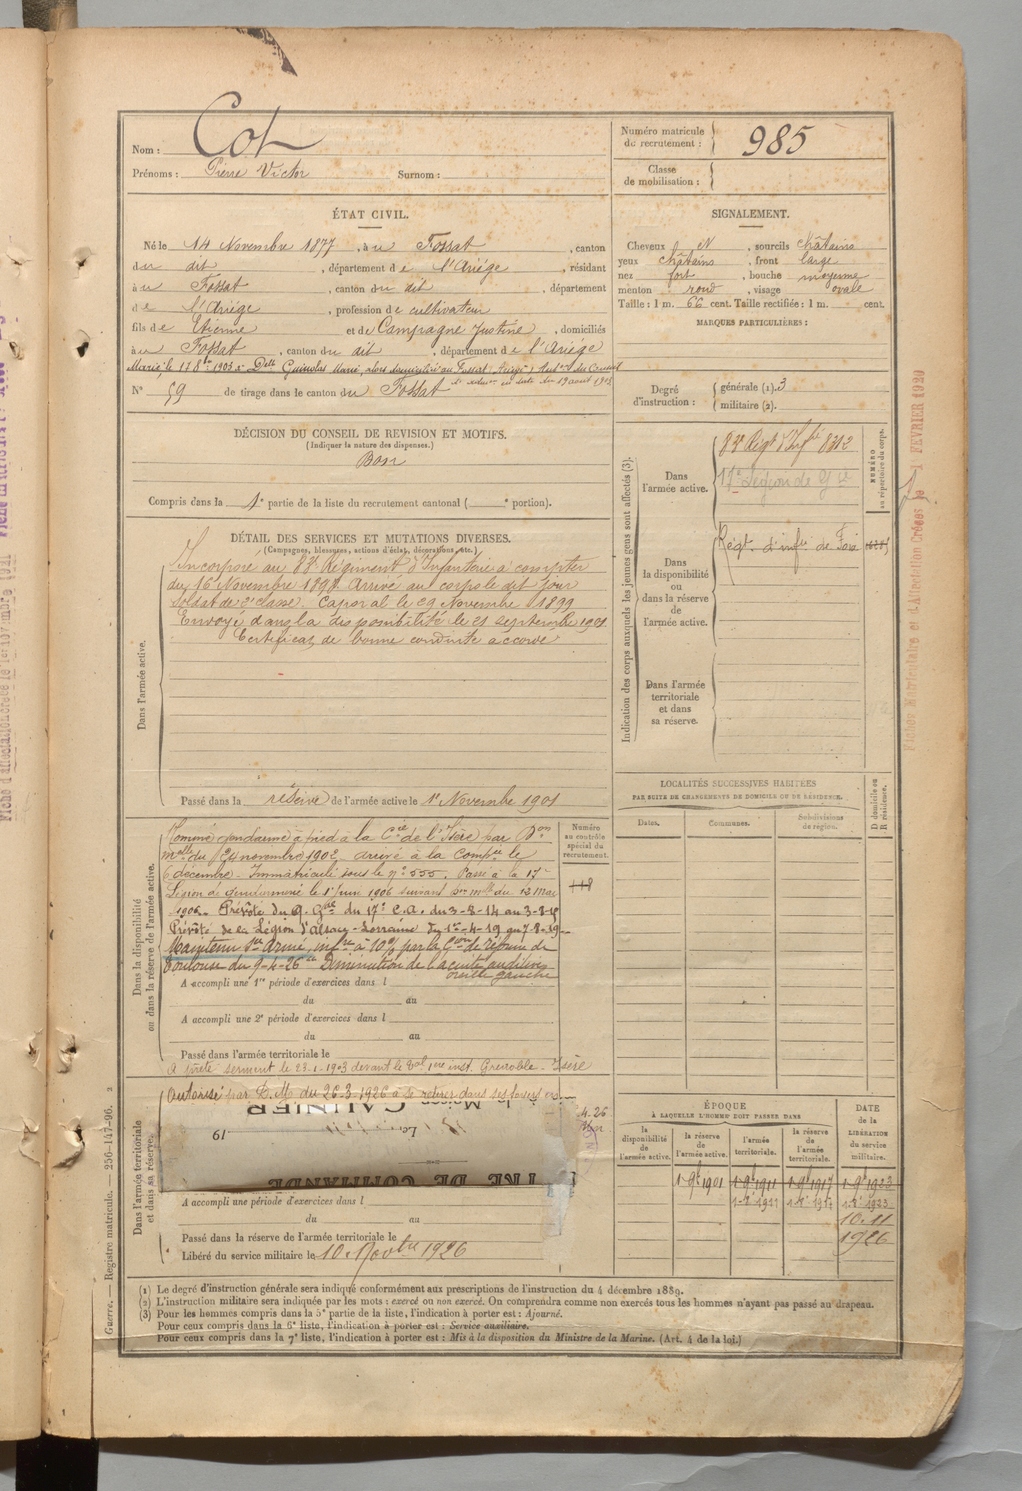 Nom : Cot
Prénoms : Pierre Victor Surnom :
Numéro matricule du recrutement : 985
Classe de mobilisation :
ÉTAT CIVIL.
Né le 14 Novembre 1877, à u Fossat, canton
du dit, département de l'Ariège, résidant
à u Fossat, canton du dit, département
de l'Ariège, profession de cultivateur
fils de Etienne et de Campagne Justine, domiciliés
à u Fossat, canton du dit, département de l'Ariège
Marié, le 17 8bre 1903 à Delle Guinolas Marie, domiciliée au Fossat (Ariège)
N° 59 de tirage dans le canton du Fossat
SIGNALEMENT.
Cheveux N, sourcils châtains
yeux châtains, front large
nez fort, bouche moyenne
menton rond, visage ovale
Taille : 1 m. 66 cent. Taille rectifiée : 1 m. cent.
MARQUES PARTICULIÈRES :
Degré d'instruction : générale (1). 3
militaire (2).
DÉCISION DU CONSEIL DE REVISION ET MOTIFS.
(Indiquer la nature des dispenses.)
Bon
Compris dans la 1e partie de la liste du recrutement cantonal ( e portion).
DÉTAIL DES SERVICES ET MUTATIONS DIVERSES.
(Campagnes, blessures, actions d'éclat, décorations, etc.)
Dans l'armée active.
Incorporé au 83e Régiment d'Infanterie à compter
du 16 Novembre 1898. Arrivé au corps le dit jour
soldat de 2e classe. Caporal le 29 Novembre 1899
Envoyé dans la disponibilité le 21 septembre 1901
Certificat de bonne conduite accordé
Passé dans la réserve de l'armée active le 1er Novembre 1901
Indication des corps auxquels les jeunes gens sont affectés (3).
NUMÉRO au répertoire du corps.
Dans l'armée active.
83e Régt d'Infie 8312
17e Légion de Gie
Dans la disponibilité ou dans la réserve de l'armée active.
Régt. d'infie de Foix
Dans l'armée territoriale et dans sa réserve.
LOCALITÉS SUCCESSIVES HABITÉES
PAR SUITE DE CHANGEMENTS DE DOMICILE OU DE RÉSIDENCE.
Dates.
Communes.
Subdivisions de région.
D domicile ou R résidence.
Dans la disponibilité ou dans la réserve de l'armée active.
Numéro au contrôle spécial du recrutement.
118
Nommé gendarme à pied à la Cie de l'Isère par Don
mlle du 24 novembre 1902 arrivé à la Compie le
6 décembre. Immatriculé sous le n° 555. Passé à la 17e
Légion de gendarmerie le 1er Juin 1906 suivant Don mlle du 12 Mai
1906. Prévôté du Q. Gal du 17e C.A. du 3-8-14 au
Prévôté de la Légion d'Alsace-Lorraine du 1er-4-19 au 7-8-19
Maintenu Sce Armé, infre à 10% par la Con de réforme de
Toulouse du 9-4-26 Diminution de l'acuité auditive
oreille gauche
A accompli une 1re période d'exercices dans l
du au
A accompli une 2e période d'exercices dans l
du au
Passé dans l'armée territoriale le
A prêté serment le 23-1-1903 devant le Bal 1ère inst. Grenoble - Isère
Dans l'armée territoriale et dans sa réserve.
Autorisé par D.M. du 26-3-1926 à se retirer dans ses foyers
19
A accompli une période d'exercices dans l
du au
Passé dans la réserve de l'armée territoriale le
Libéré du service militaire le 10 Novbre 1926
ÉPOQUE
À LAQUELLE L'HOMME DOIT PASSER DANS
la disponibilité de l'armée active.
la réserve de l'armée active.
l'armée territoriale.
la réserve de l'armée territoriale.
DATE de la LIBÉRATION du service militaire.
1-9bre 1901 1-9bre 1911 1-9bre 1917 1-9bre 1923
10.11
1926
(1) Le degré d'instruction générale sera indiqué conformément aux prescriptions de l'instruction du 4 décembre 1889.
(2) L'instruction militaire sera indiquée par les mots : exercé ou non exercé. On comprendra comme non exercés tous les hommes n'ayant pas passé au drapeau.
(3) Pour les hommes compris dans la 5e partie de la liste, l'indication à porter est : Ajourné.
Pour ceux compris dans la 6e liste, l'indication à porter est : Service auxiliaire.
Pour ceux compris dans la 7e liste, l'indication à porter est : Mis à la disposition du Ministre de la Marine. (Art. 4 de la loi.)
Guerre. — Registre matricule. — 256-147-96.
Fiches Matriculaire et d'Affectation Créées le 1 FEVRIER 1929